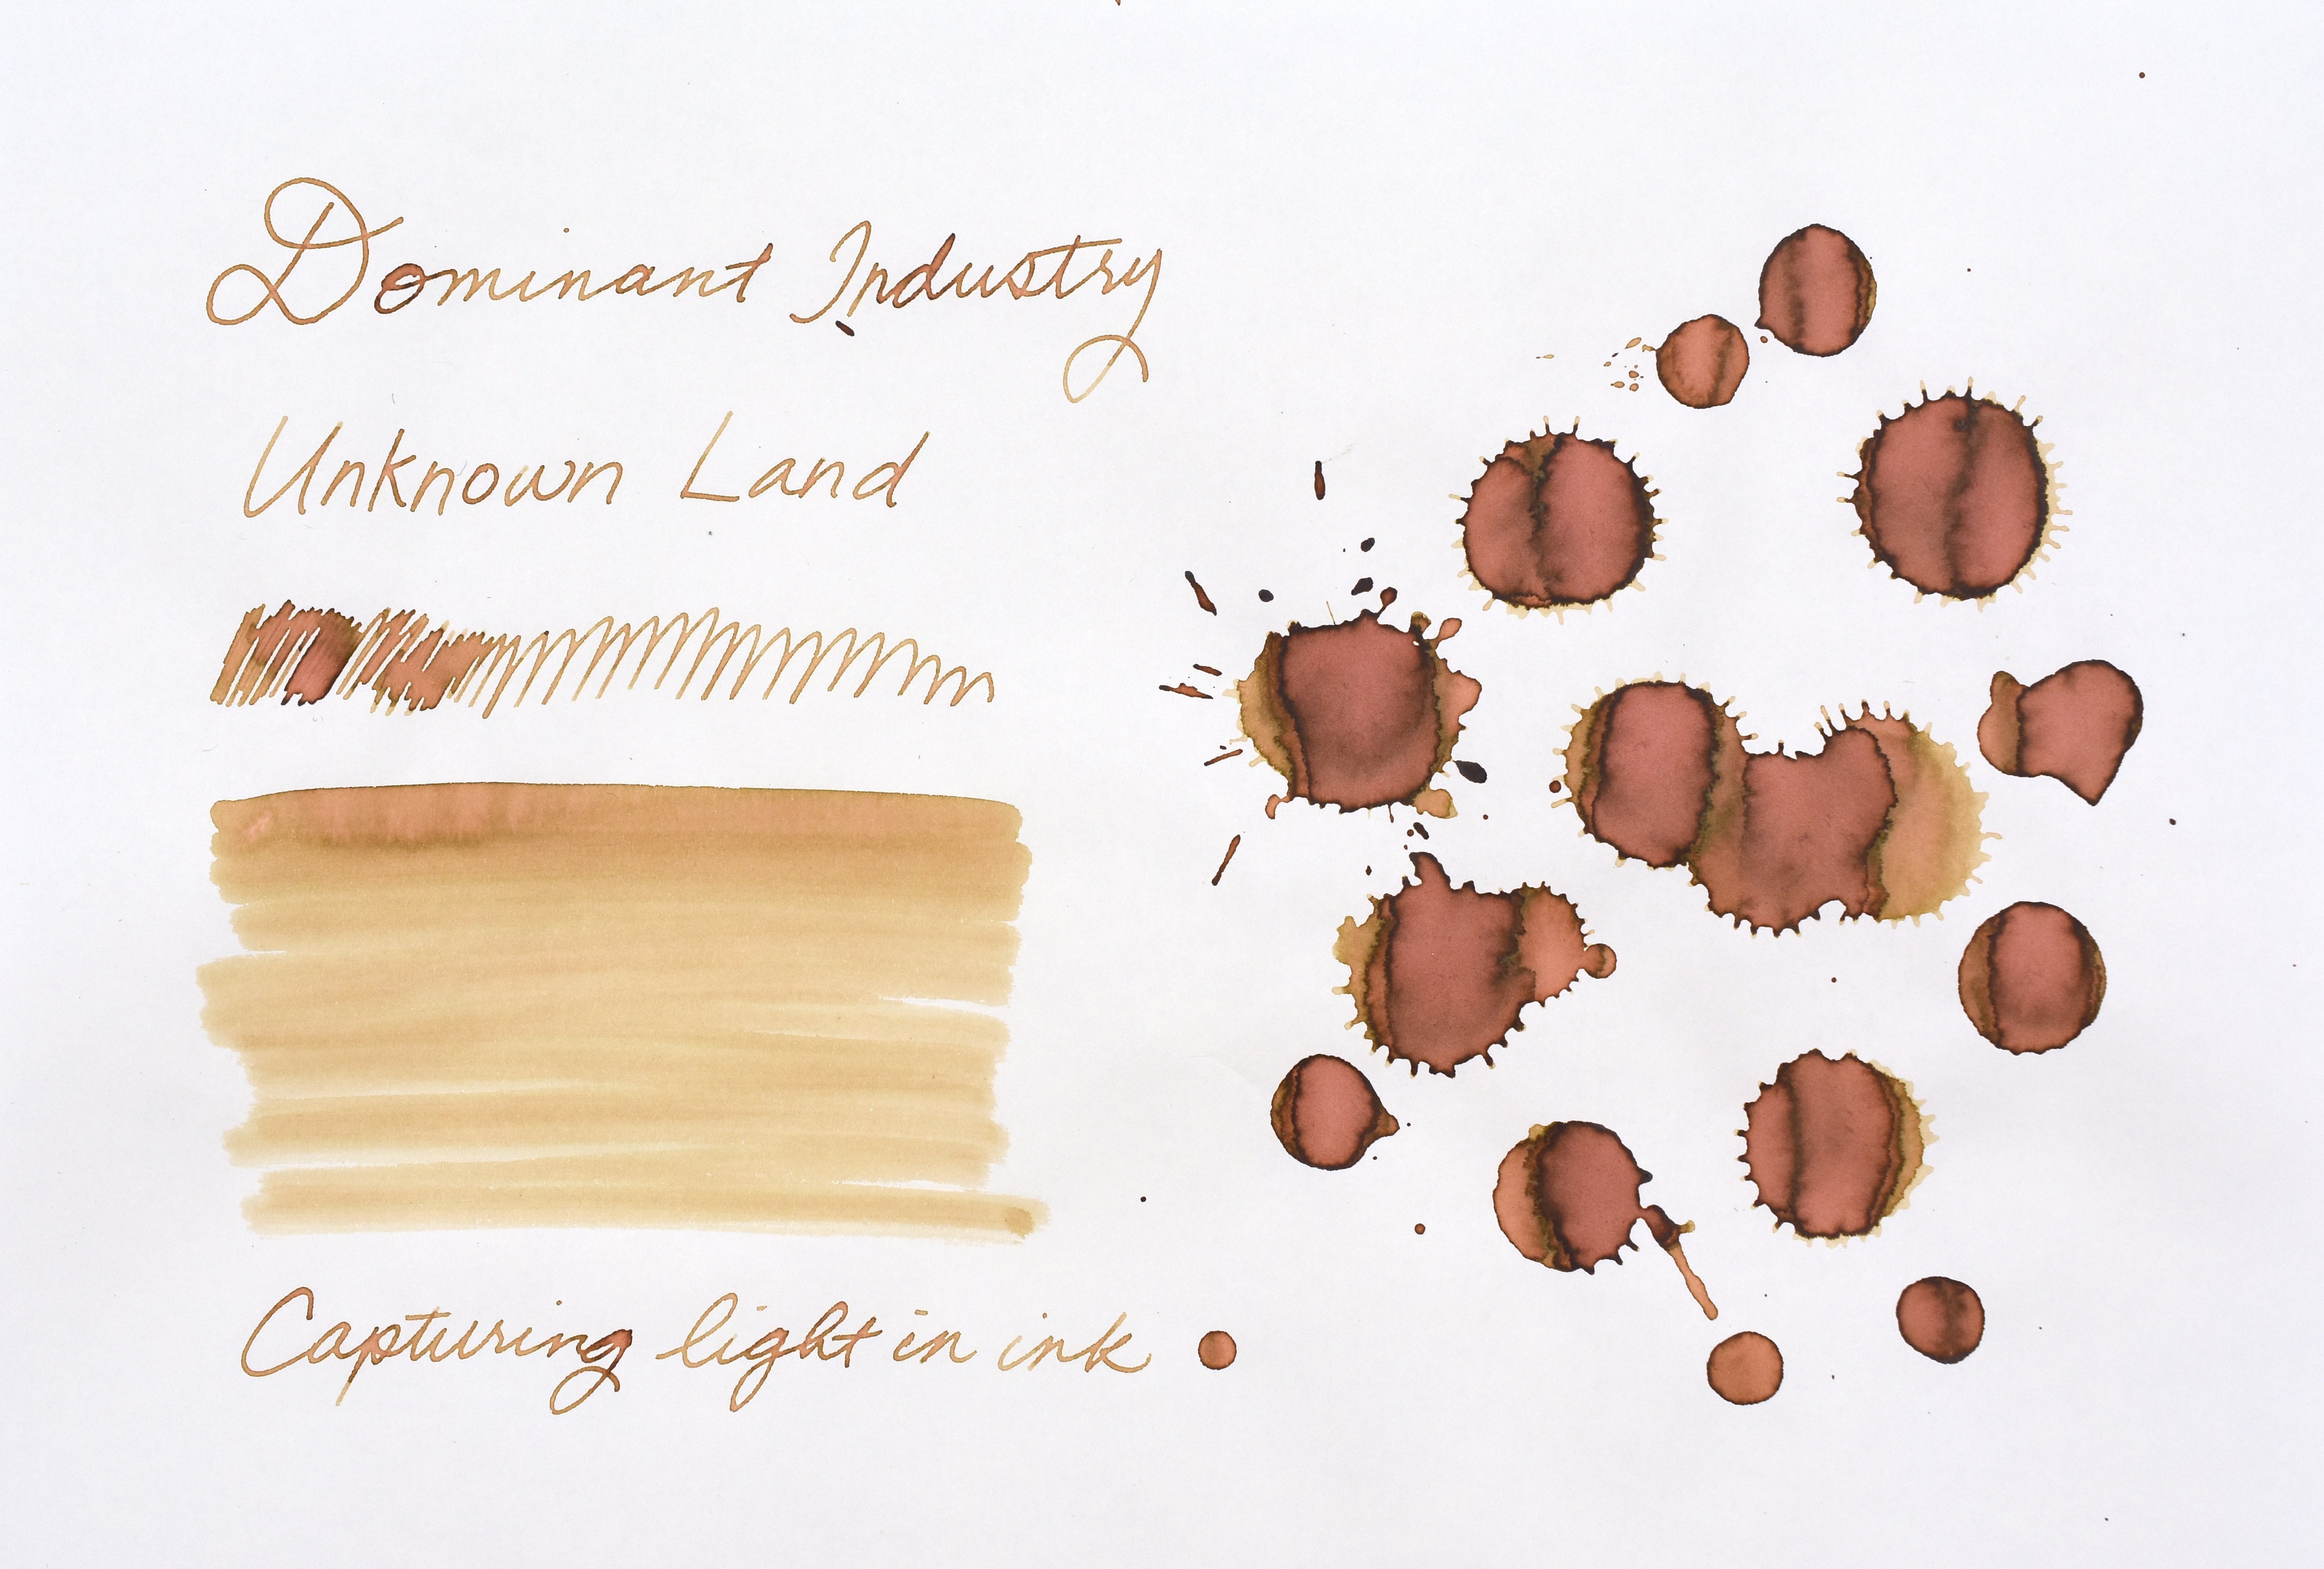 Dominant Industry
Unknown Land
Capturing light in ink